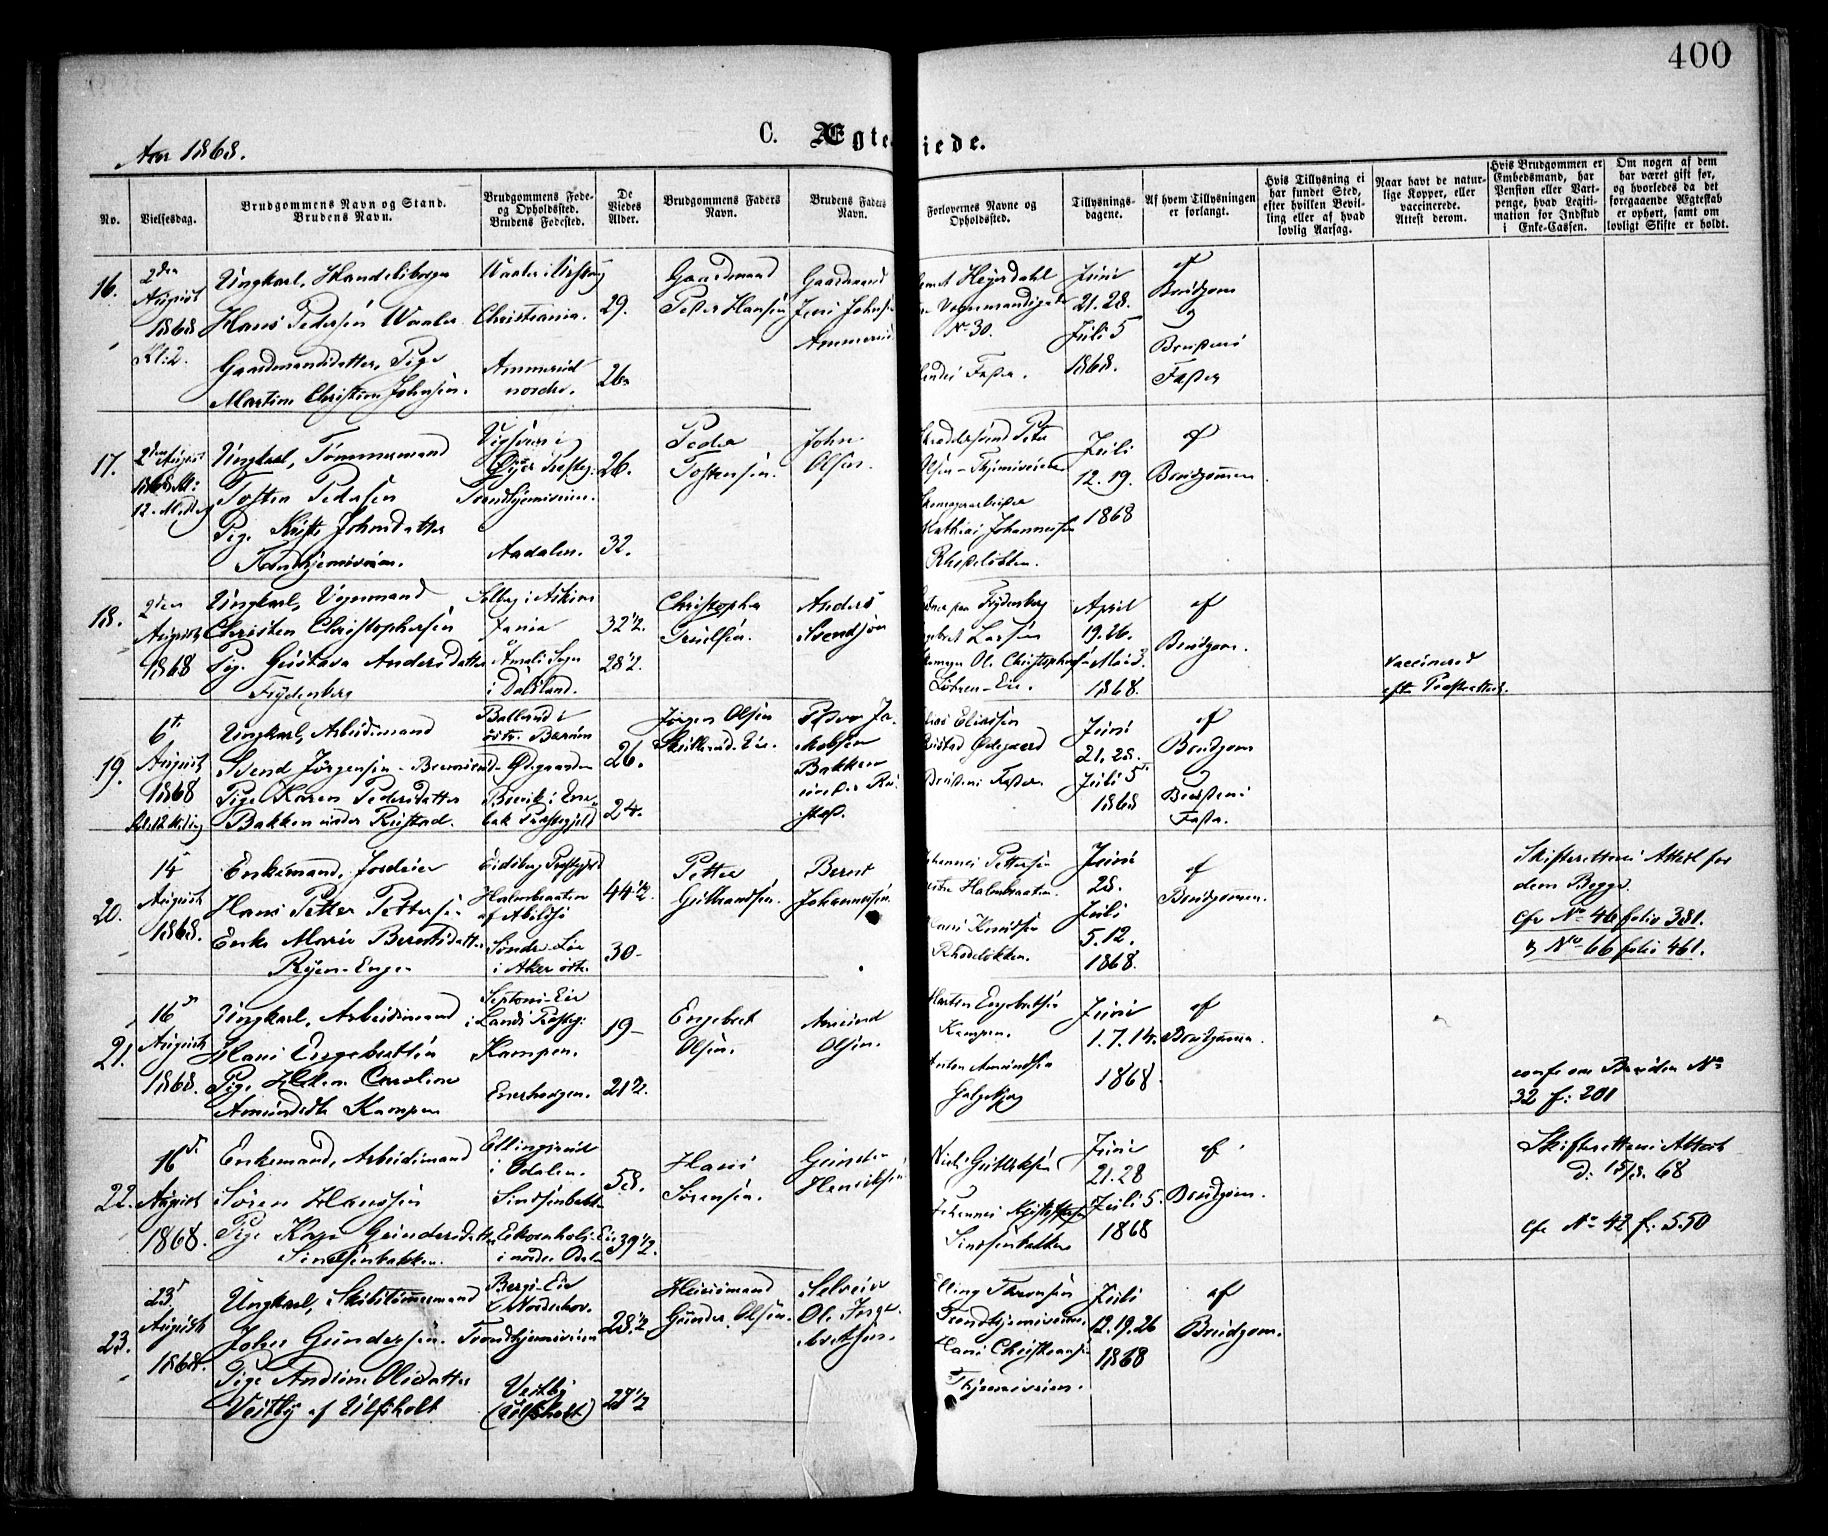 400
Aar 1868.
C. Ægte
iede.
No.
Vielsesdag.
Brudgommens Navn og Stand.
Brudens Navn.
Brudgommens Føde-
og Opholdssted.
Brudens Fødested.
De
Viedes
Alder.
Brudgommens Faders
Navn.
Brudens Faders
Navn.
Forlovernes Navne og
Opholdssted.
Tillysnings-
dagene.
Af hvem Tillysningen
er forlangt.
Hvis Tillysning ei
har fundet Sted,
efter hvilken Bevil-
ling eller af hvad
lovlig Aarsag.
Naar havt de natur-
lige Kopper, eller
vaccinerede.
Attest derom.
Hvis Brudgommen er
Embedsmand, har
Pension eller Vart-
penge, hvad Legiti-
mation for Indskud
i Enke-Cassen.
Om nogen af dem
har været gift før,
og hvorledes da det
foregaaende Ægteskab
er ophørt, samt om
lovligt Skifte er holdt.
16.
2den
August
1868
Kl: 2.
Ungkarl, Handelsborger
Hans Pedersen Waaler
Gaardmandsdatter, Pige
Martine Christine Johnsen.
Christiania.
Ammerud
nordre.
29.
26
Gaardmand
Peter Hansen
Gaardmand
Jens Johns
Ammerud
Heyerdahl
No 30.
Fader.
Juni
21. 28.
Juli 5
1868.
af
Brudgom
og
Brudens
Fader
17.
2den August
1868 Kl:
12. Middag
Ungkarl, Tømmermand
Tosten Pedersen
Pige Johnsdatter
Trondhjemsveien.
Trondhjemsveien.
Aadalen.
26.
32.
Peder
Tostensen.
John
Olsen.
Peter
Olsen - Thjemsveien
Mathias Johannesen
Rhodeløkken.
Juli
12. 19.
1868
af
Brudgommen.
18.
2den
August
1868
Ungkarl, Vognmand
Christen Christophersen
Pig. Gustava Andersdatter
Frydenberg
i Askim
Åmåls Sogn
i Dalsland.
32 1/2.
28 1/2.
Christopher
Truelsen.
Anders
Svendsen
Frydenberg
Larsen
Ole Christophersen
Løkken-Eie.
April
19. 26.
Mai 3.
1868.
af
Brudgom.
vaccinered
eft. Præsteattest.
19.
6te
August
1868
Kl. 12 Middag
Ungkarl, Arbeidsmand
Svend Jørgensen
Pige Karen Pedersdatter
Bakken under Rustad.
Ballerud i
østr. Bærum
Ødegaarden
i Ene-
bak Præstegjeld
26.
24.
Jørgen Olsen
Peder Ja-
kobsen
Bakken
under Ru-
stad.
Eliassen
Rustad Ødegaard
Brudens Fader
Juni
21. 28.
Juli 5
1868
af
Brudgom
Brudens
Fader.
20.
14
August
1868.
Enkemand, Jordeier
Hans Petter Pettersen
Enke Marie Berntsdatter
Ryen-Enge
Eidsberg Præstegjeld
Halmbraaten
af Abildsø
Søndre Lie
i Aker østr.
44 1/2.
30-
Petter
Gulbrandsen.
Bernt
Johannesen.
Johannes Pettersen
Halmbraaten.
Hans Knudsen
Rhodeløkken.
Juni
28.
Juli
5. 12.
1868.
af
Brudgommen.
Skifterettens Attest for
dem Begge.
cfr No 46 folio 381.
& No 66 folio 461.
21.
16de
August
1868.
Ungkarl, Arbeidsmand
Hans Engebretsen
Pige Helene Caroline
Amundsdtr Kampen
i Lands Præsteg:
Kampen.
Enerhaugen.
19-
21 1/2.
Engebret
Olsen.
Amund
Olsen.
Morten Engebretsen
Kampen.
Anton Amundsen
Galgeberg
Juni
1. 7. 14.
1868.
af
Brudgommen.
conf. om Bruden No
32 f: 201
22.
16de
August
1868.
Enkemand, Arbeidsmand
Søren Hanssen
Pige Kari Gundersdatter
Sinsenbakken.
i Odalen.
Sinsenbakken
i nordre Odal
58.
39 1/2.
Hans
Sørensen.
Gunder
Henriksen
Niels Gulliksen
Johannes
Sinsenbakken
Juni
21. 28
Juli 5.
1868
af
Brudgom.
Skifterettens Attest
d: 15/8. 68
cfr No 42 f. 550
23.
23de
August
1868.
Ungkarl, Skibstømmermand
Johan Gundersen
Pige Andrine Olsdatter
Vestby af Ulfsholt
Bergs-Eie
i Norderhov.
Trondhjemsveien
Vestby
(Ulfsholt)
28 1/2
27 1/2
Huusmand
Gunder Olsen.
Selveier
Ole Inge-
bretsen.
Elling Thronsen
Trondhjemsveien.
Hans Christiansen
Thjemsveien.
Juli
12. 19. 26
1868
af
Brudgom.